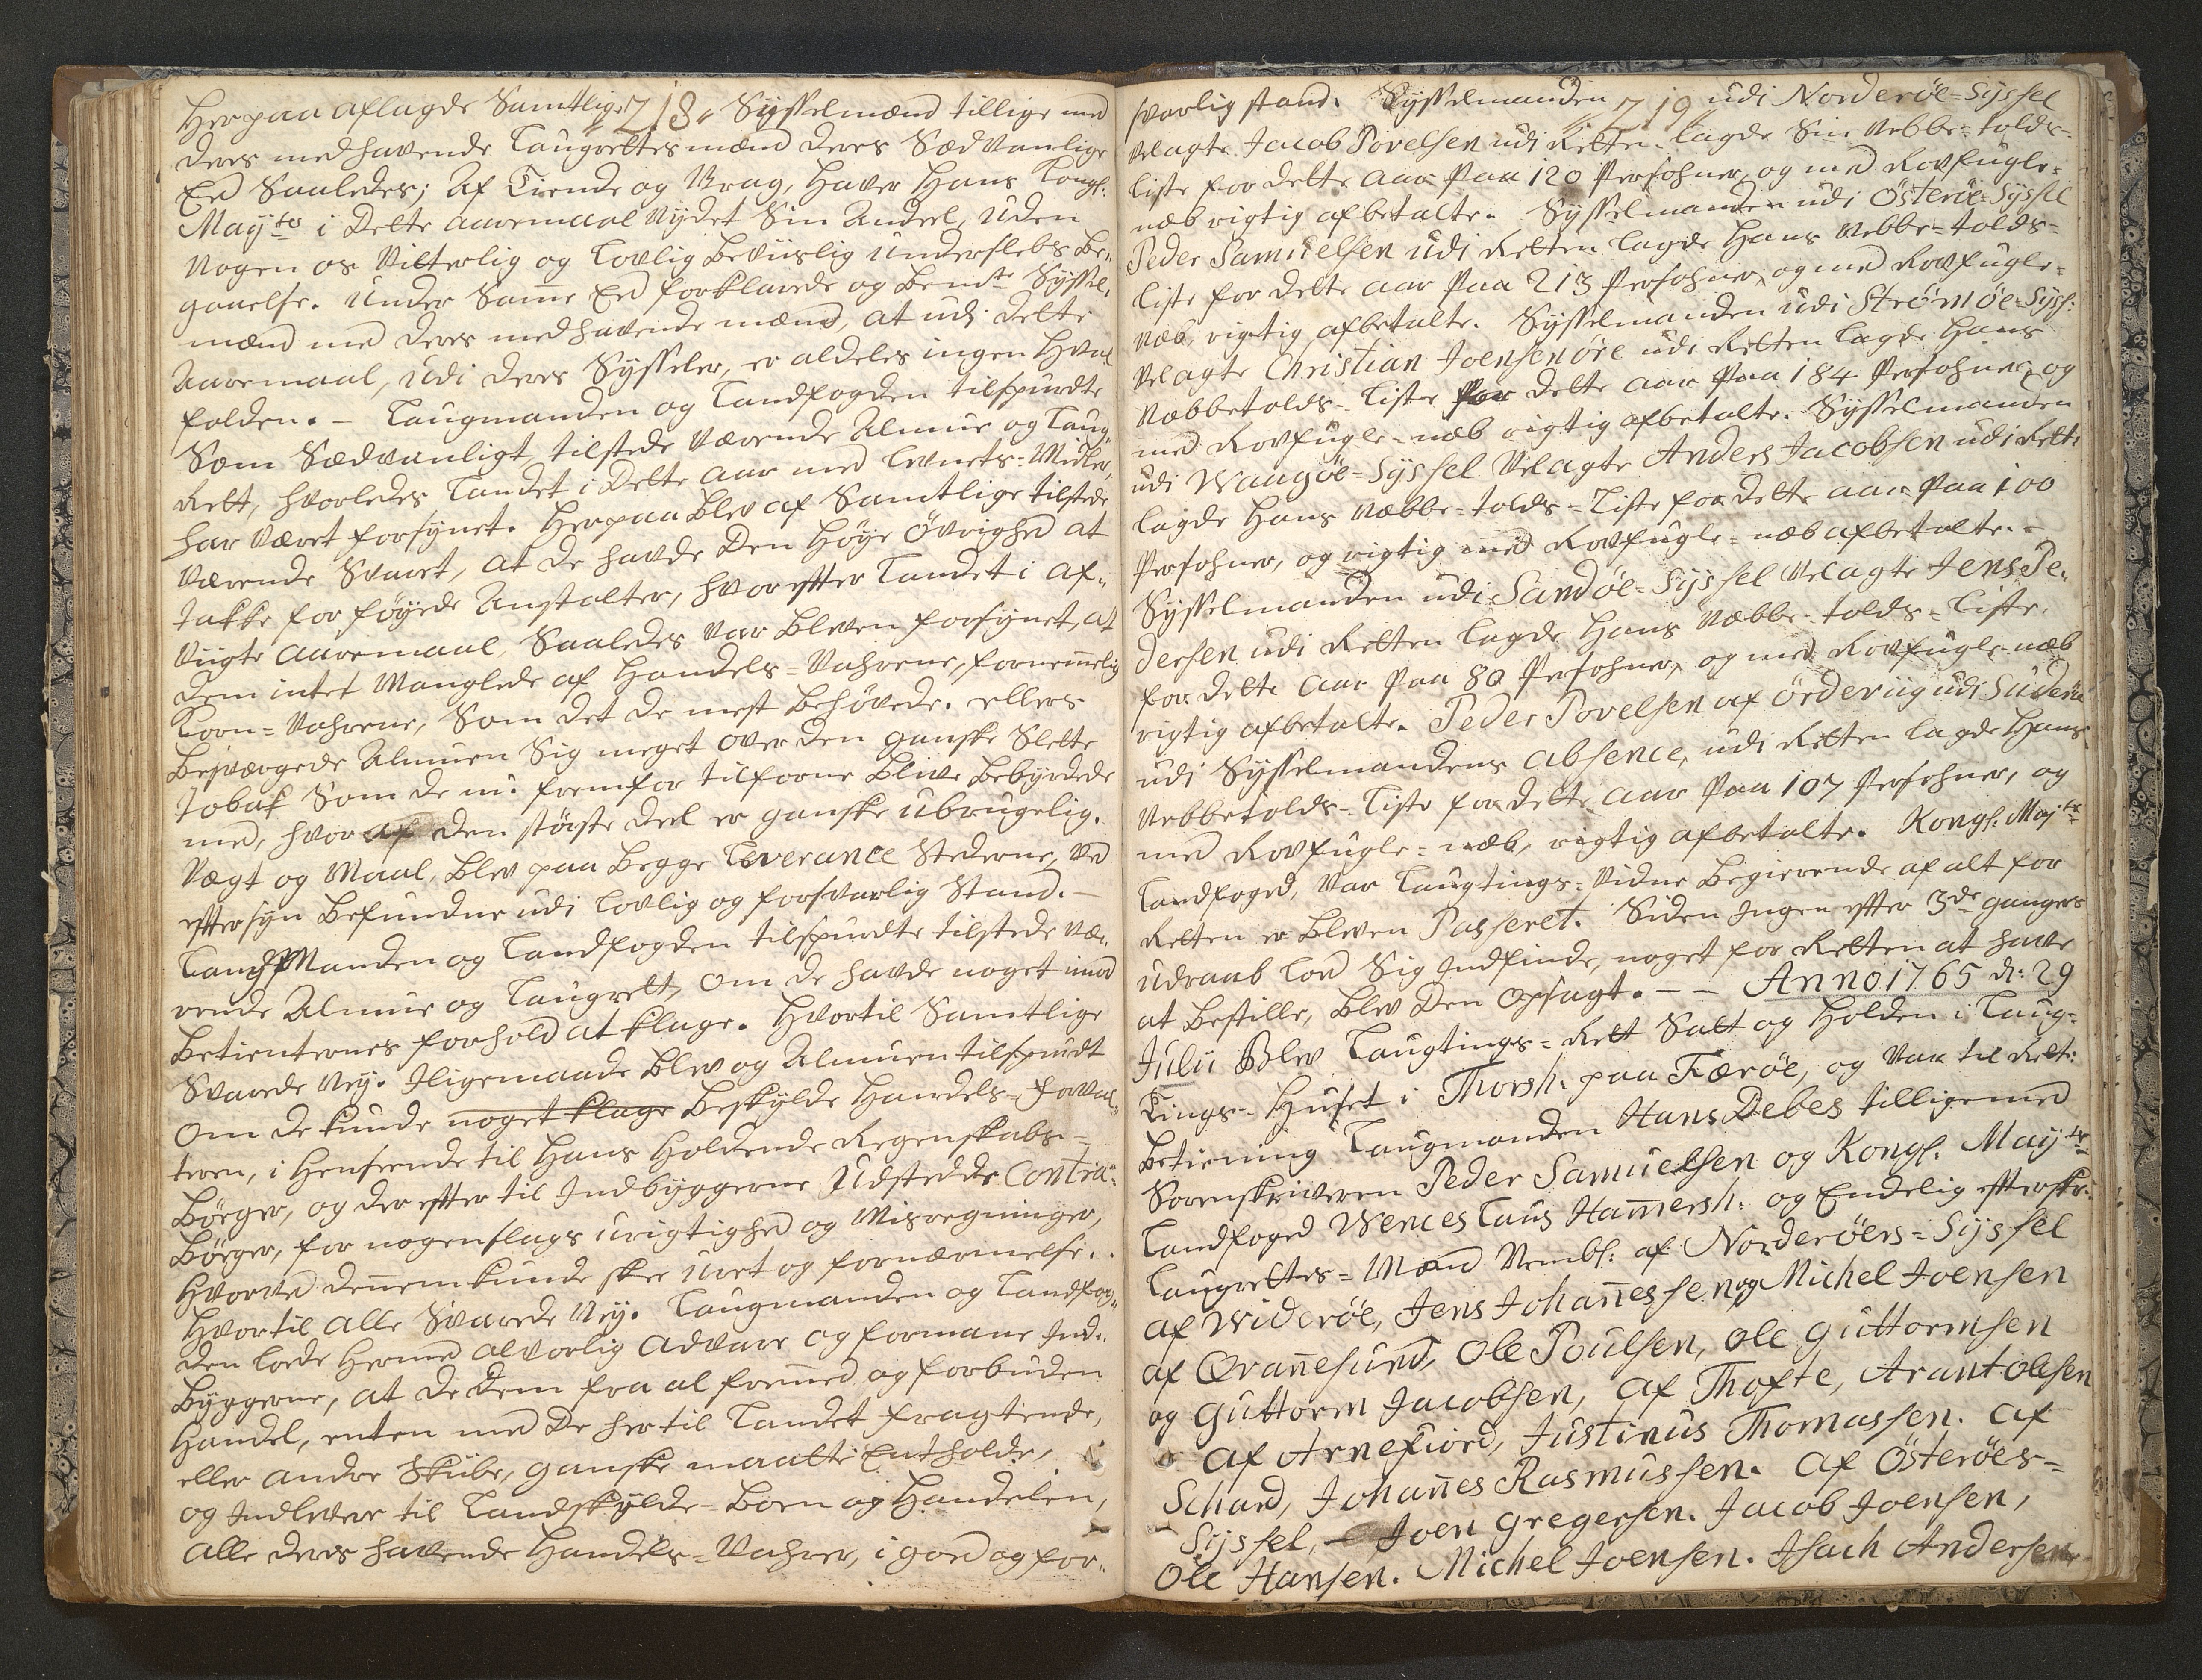 218.
Her paa aflagde Samtlige Sysselmænd tillige med
deres medhavende Laugrettesmænd deres Sædvanlige
Eed Saaledes; Af Tiende og Vrag, haver Hans Kongl:
Mayts i dette aaremaal Nydet Sin Andeel, uden
Nogen os Vitterlig og Lovlig beviislig undersleb be„
gaaelse. Under Samme Eed forklarede og bemte Syssel„
mænd med deres medhavende mænd, at udi dette
Aaremaal, udi deres Sysseler, er aldeles ingen Hval
falden. – Laugmanden og Landfogden tilspurdte
Som Sædvanligt, tilstede værende Almue og Laug„
Rett, hvorledes Landet i dette Aar med Levnets-Midler
har været forsynet. Herpaa blev af Samtlige tilstede
værende Svaret, at de havde den Høye Øvrighed at
takke for føyede Anstalter, hvorefter Landet i af„
vigte aaremaal Saaledes var bleven forsynet, at
dem intet Manglede af Handels-Vahrene, fornemmelig
Korn-Vahrene, Som det de mest behøvede. ellers
besværgede Almuen Sig meget over den ganske Slette
Tobak Som de nu fremfor tilforne blive bebyrdede
med, hvor af den største deel er ganske ubrugelig.
Vægt og Maal, blev paa begge Leverance Stederne, ved
eftersyn befundne udi Lovlig og forsvarlig Stand. –
LaugManden og Landfogden tilspurdte tilstede væ„
rende Almue og Laugrett, om de havde noget imod
betienternes forhold at klage. Hvortil Samtlige
Svarede Ney. Iligemaade blev og Almuen tilspurdt
om de kunde noget klage beskylde Handels-Forval„
teren, i Henseende til Hans holdende Regenskabs-
bøger, og der efter til Indbyggerne Udstedde Contra-
bøger, for nogenslags urigtighed og Misregninger,
Hvorved dennem kunde skee uret og fornærmelse.
Hvortil alle Svarede Ney. Laugmanden og Landfog„
den lode hermed alvorlig advare og formane Ind„
byggerne, at de dem fra al fremmed og forbuden
Handel, enten med de her til Landet fragtende,
eller andre Skibe, ganske maatte Entholde,
og Indlevere til Landskylds-boen og Handelen,
alle deres havende Handels-Vahrer, i goed og for„
219.
svarlig stand. Sysselmanden udi Norderøe-Syssel
velagte Jacob Povelsen udi Retten lagde Sin Nebbe-tolds-
liste for dette aar paa 120 Persohner, og med Rovfugle-
næb rigtig afbetalte. Sysselmanden udi Österøe-Syssel
Peder Samuelsen udi Retten lagde Hans Nebbe-tolds-
liste for dette aar paa 213 Persohner, og med Rovfugle-
næb, rigtig afbetalte. Sysselmanden udi Strømøe-Syss:
velagte Christian Joensen øre udi Retten lagde Hans
Næbbetolds-Liste for dette aar paa 184 Persohner, og
med Rovfugle-næb rigtig afbetalte. Sysselmanden
udi Waagøe-Syssel velagte Anders Jacobsen udi Rette
lagde Hans Næbbe-tolds-Liste for dette aar paa 100
Persohner, og rigtig med Rovfugle-næb afbetalte. –
Sysselmanden udi Sandøe-Syssel velagte Jens Pe„
dersen udi Retten lagde Hans Næbbe-tolds-Liste
for dette aar paa 80 Persohner, og med Rovfugle-næb
rigtig afbetalte. Peder Povelsen af Ørderviig udi Suderøe
udi Sysselmandens absence, udi Retten lagde Hans
Nebbetolds-Liste for dette aar paa 107 Persohner, og
med Rovfugle-næb, rigtig afbetalte. Kongl. Majts
Landfoged, var Laugtings-Vidne begierende af alt for
Retten er bleven Passeret. Siden Ingen efter 3de ganges
udraab lod Sig Indfinde, noget for Retten at have
at bestille, blev den opsagt. – – Anno 1765 d: 29
Julii Blev Laugtings-Rett Satt og Holden i Laug-
Tings-Huset i Thorsh. paa Færøe, og var til Rett:
betiening Laugmanden Hans Debes tilligemed
Sorenskriveren Peder Samuelsen og Kongl. Mayts
Landfoged Wenceslaus Hammersh: og Endelig efterskr:
Laugrettes-Mænd Nembl: af Norderøers-Syssel
af Widerøe, Jens Johannessen og Michel Joensen
af Qvannesund, Ole Poulsen, Ole Guttormsen
og Guttorm Jacobsen, af Thofte, Arant Olesen
af Arnefiord, Justinus Thomassen. af
Schard, Johannes Rasmussen. af Österøes-
Syssel, – Joen Gregersen. Jacob Joensen,
Ole Hansen. Michel Joensen. Isach Andersen